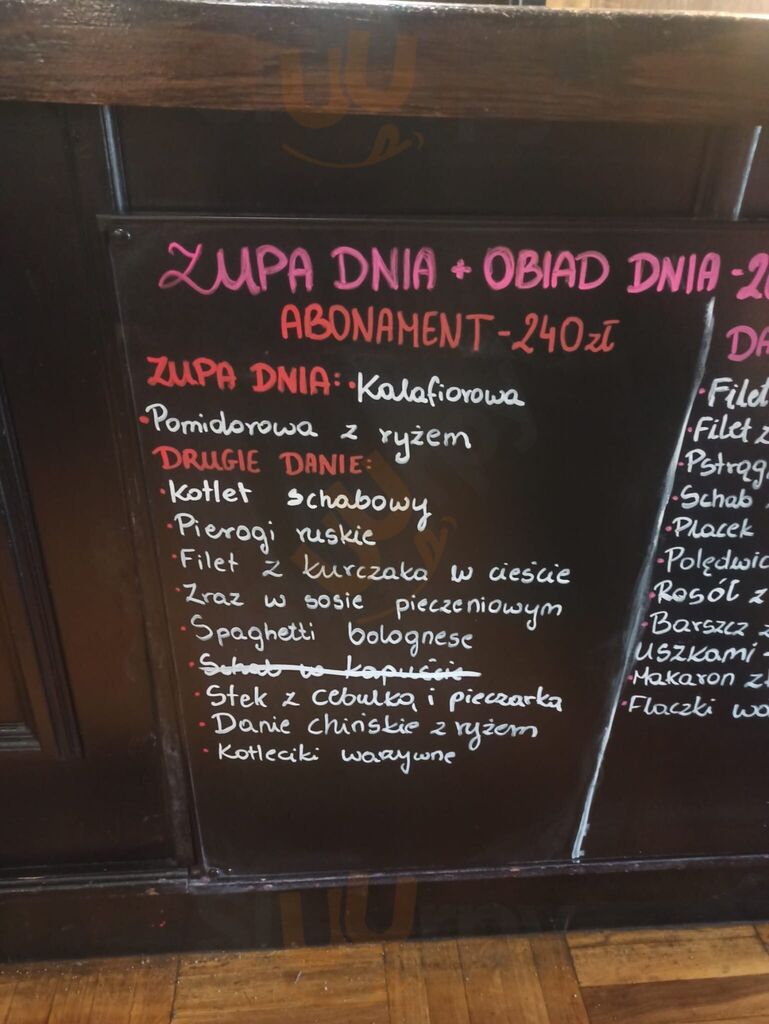 ZUPA DNIA + OBIAD DNIA - 2
ABONAMENT - 240 zł
ZUPA DNIA: • Kalafiorowa
• Pomidorowa z ryżem
DRUGIE DANIE:
• Kotlet schabowy
• Pierogi ruskie
• Filet z kurczaka w cieście
• Zraz w sosie pieczeniowym
• Spaghetti bolognese
• Schab w kapuście
• Stek z cebulką i pieczarką
• Danie chińskie z ryżem
• Kotleciki warzywne
DA
• Filet
• Filet z
• Pstrąg
• Schab
• Placek
• Polędwic
• Rosół z
• Barszcz z
uszkami -
• Makaron z
• Flaczki wo